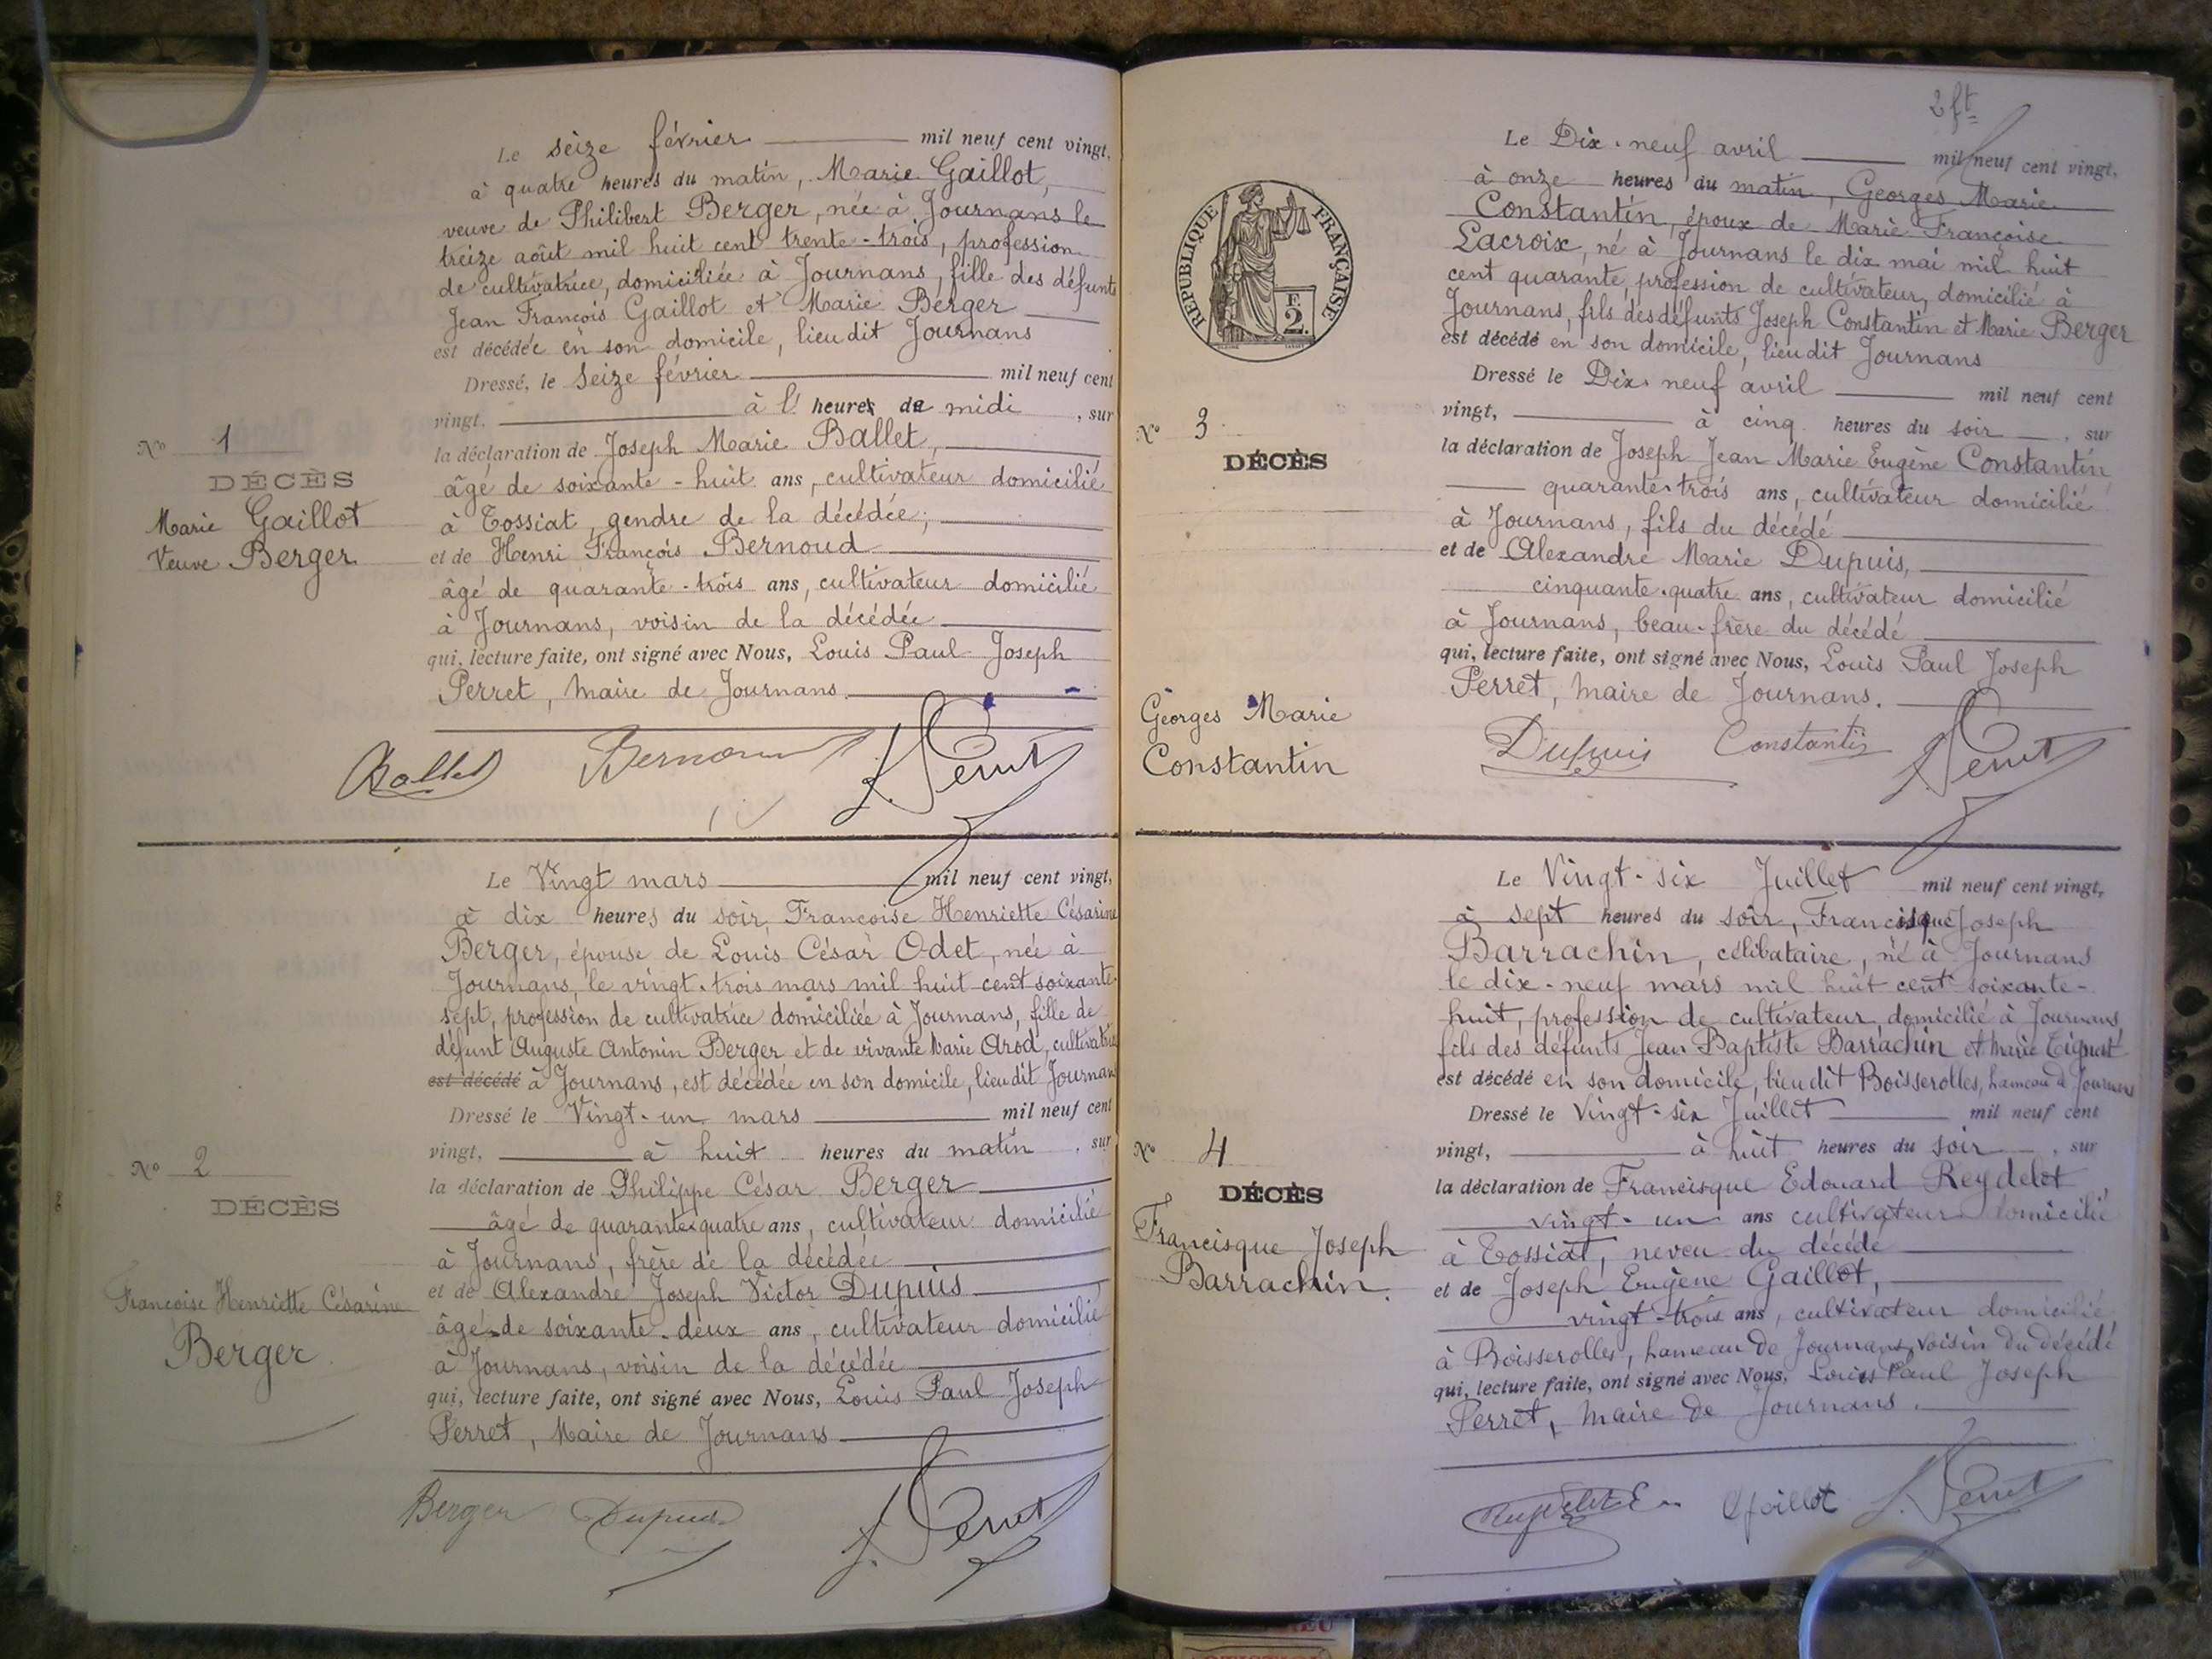 Le seize février mil neuf cent vingt,
à quatre heures du matin, Marie Gaillot,
veuve de Philibert Berger, née à Journans le
treize août mil huit cent trente-trois, profession
de cultivatrice, domiciliée à Journans, fille des défunts
Jean François Gaillot et Marie Berger
est décédée en son domicile, lieu dit Journans
Dressé, le Seize février mil neuf cent
vingt, à l' heure de midi, sur
la déclaration de Joseph Marie Ballet,
âgé de soixante-huit ans, cultivateur domicilié
à Tossiat, gendre de la décédée,
et de Henri François Bernoud
âgé de quarante-trois ans, cultivateur domicilié
à Journans, voisin de la décédée
qui, lecture faite, ont signé avec Nous, Louis Paul Joseph
Perret, Maire de Journans.
Nº 1
DÉCÈS
Marie Gaillot
Veuve Berger
Ballet Bernoud L. Perret
Le Vingt mars mil neuf cent vingt,
à dix heures du soir, Françoise Henriette Césarine
Berger, épouse de Louis César Odet, née à
Journans, le vingt-trois mars mil huit cent soixante-
sept, profession de cultivatrice domiciliée à Journans, fille de
défunt Auguste Antonin Berger et de vivante Marie Arod, cultivatrice
est décédé à Journans, est décédée en son domicile, lieu dit Journans
Dressé le Vingt-un mars mil neuf cent
vingt, à huit heures du matin, sur
la déclaration de Philippe César Berger
âgé de quarante-quatre ans, cultivateur domicilié
à Journans, frère de la décédée
et de Alexandre Joseph Victor Dupuis
âgé de soixante-deux ans, cultivateur domicilié
à Journans, voisin de la décédée
qui, lecture faite, ont signé avec Nous, Louis Paul Joseph
Perret, Maire de Journans
Nº 2
DÉCÈS
Françoise Henriette Césarine
Berger
Berger Dupuis L. Perret
2 ft
Le Dix-neuf avril mil neuf cent vingt,
à onze heures du matin, Georges Marie
Constantin, époux de Marie Françoise
Lacroix, né à Journans le dix mai mil huit
cent quarante, profession de cultivateur, domicilié à
Journans, fils des défunts Joseph Constantin et Marie Berger
est décédé en son domicile, lieu dit Journans
Dressé le Dix-neuf avril mil neuf cent
vingt, à cinq heures du soir, sur
la déclaration de Joseph Jean Marie Eugène Constantin
quarante-trois ans, cultivateur domicilié
à Journans, fils du décédé
et de Alexandre Marie Dupuis,
cinquante-quatre ans, cultivateur domicilié
à Journans, beau-frère du décédé
qui, lecture faite, ont signé avec Nous, Louis Paul Joseph
Perret, Maire de Journans.
RÉPUBLIQUE FRANÇAISE
E
2.
Nº 3
DÉCÈS
Georges Marie
Constantin
Dupuis Constantin L. Perret
Le Vingt-six Juillet mil neuf cent vingt,
à sept heures du soir, Francisque Joseph
Barrachin, célibataire, né à Journans
le dix-neuf mars mil huit cent soixante-
huit, profession de cultivateur, domicilié à Journans,
fils des défunts Jean Baptiste Barrachin et Marie
est décédé en son domicile, lieu dit Boisserolles, hameau de Journans
Dressé le Vingt-six Juillet mil neuf cent
vingt, à huit heures du soir, sur
la déclaration de Francisque Edouard Reydelet
vingt-un ans cultivateur domicilié
à Tossiat, neveu du décédé
et de Joseph Eugène Gaillot,
vingt-trois ans, cultivateur domicilié
à Boisserolles, hameau de Journans, voisin du décédé
qui, lecture faite, ont signé avec Nous, Louis Paul Joseph
Perret, Maire de Journans.
Nº 4
DÉCÈS
Francisque Joseph
Barrachin.
Reydelet E Gaillot L. Perret